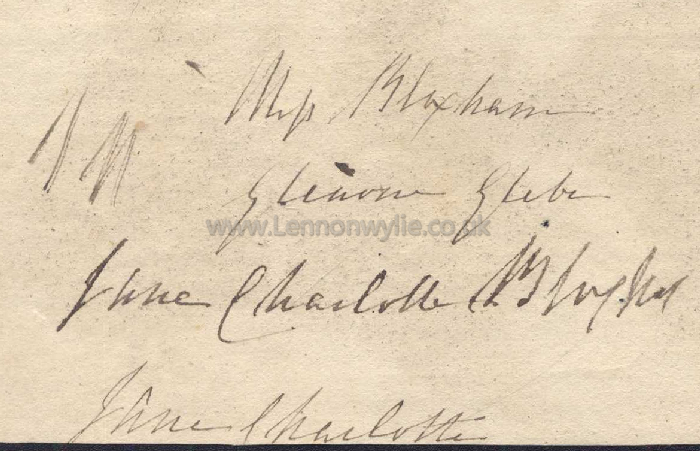 Miss Bloxham
Glebe
www.Lennonwylie.co.uk
Jane Charlotte
Jane Charlotte